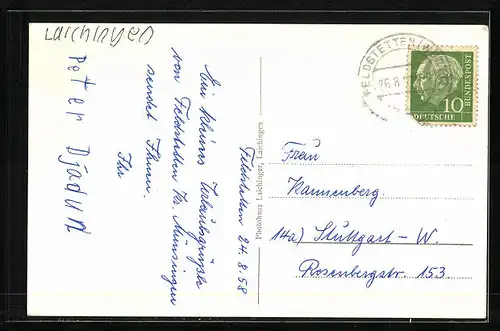 Laichingen
Feldstetten 24.8.58
Ein kleines Urlaubsgrüßle
von Feldstetten Kr. Münsingen
sendet Ihnen
Ihr
Peter Djadun
Photohaus Laichinger, Laichingen
FELDSTETTEN
26.8
10
DEUTSCHE
BUNDESPOST
Frau
Kannenberg.
14a) Stuttgart-W.
Rosenbergstr. 153.